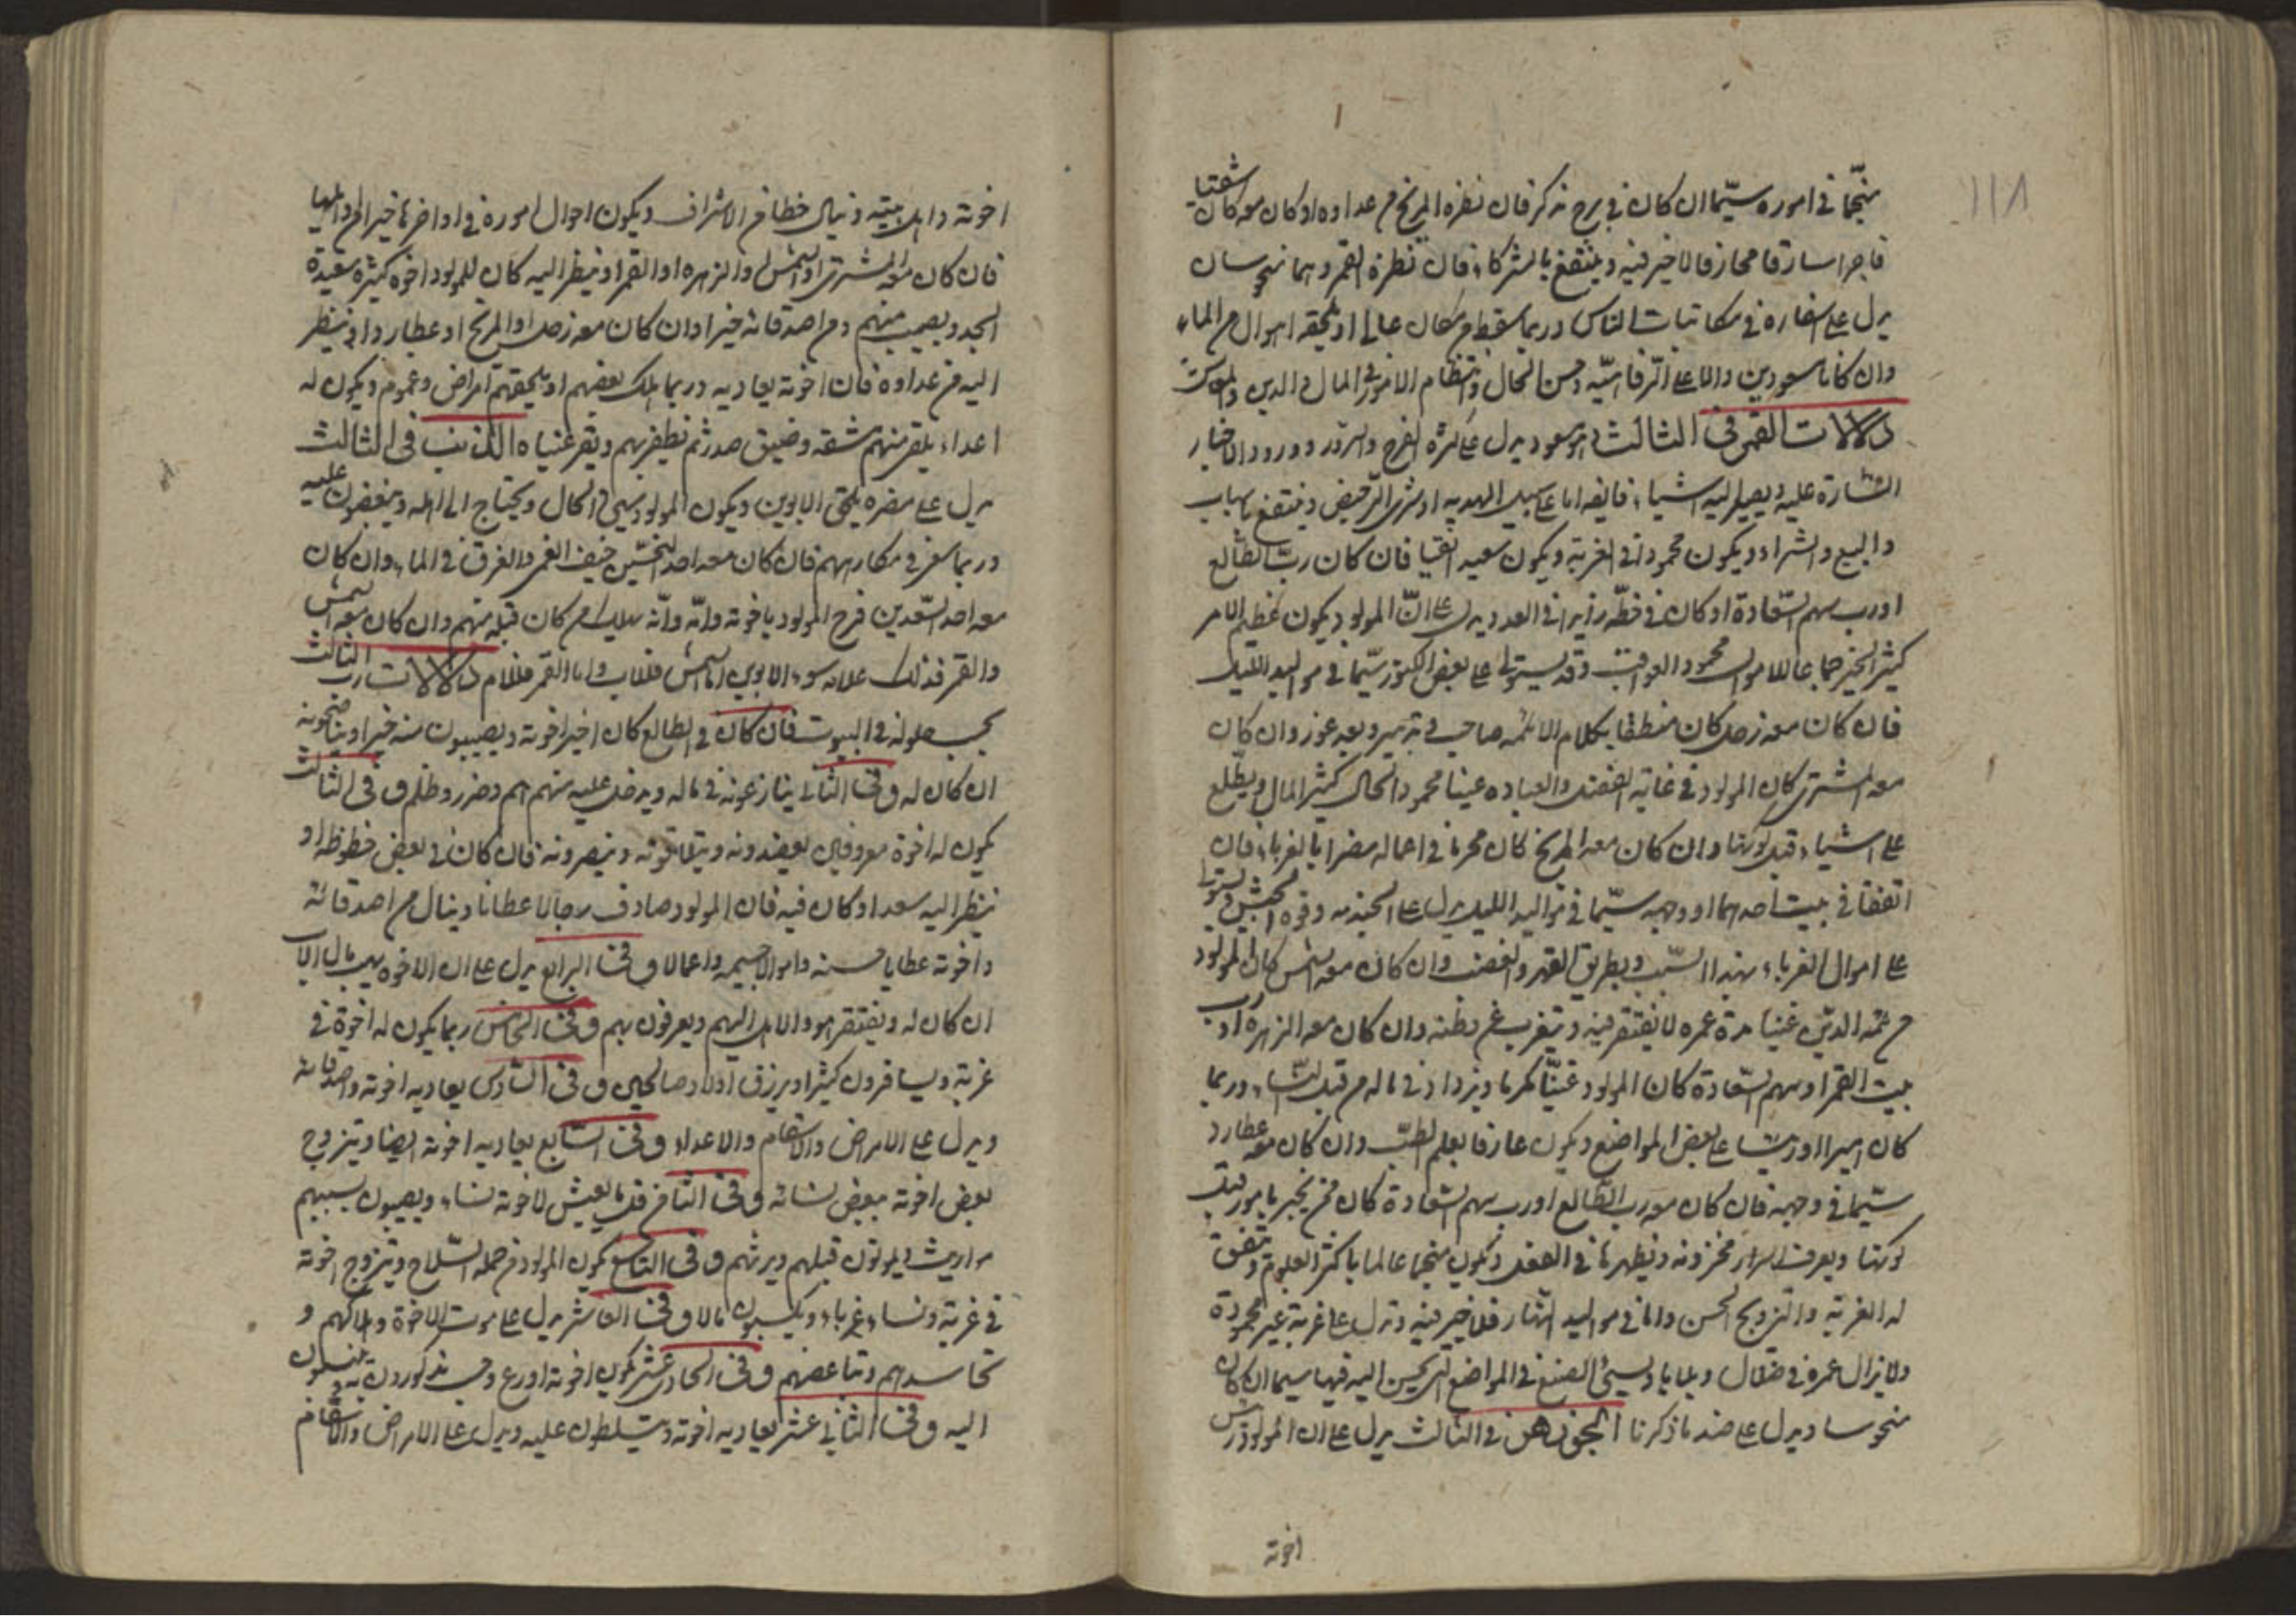 ١١٨
منجّما في اموره سيّما ان كان في برج مذكر فان نظره المريخ من عداوه او كان معه كان شقيا
فاجرا سارقا محازفا لا خير فيه وينتفع بالشركاء فان نظره القمر وهما منحوسان
يدل على اسفاره في مكاتبات الناس وربما سقط من مكان عالى او يلحقه اهوال من الماء
وان كانا مسعودين دالا على الرفاهيّه وحسن الحال وانتظام الامور في المال والدين
دلالات القمر في الثالث وهو مسعود يدل على كثرة الفرح والسرور وورود الاخبار
السّارة عليه ويصل اليه اشياء فايقه اما على سبيل الهديه او شرى الرّخيص وينتفع باسباب
والبيع والشراء ويكون محمودا في الغربة ويكون سعيدا تقيا فان كان ربّ الطّالع
او رب سهم السّعادة او كان في حظّه زايدا في العدد يدل على انّ المولود يكون عظيم الامر
كثير الخير جماعا للاموال محمود العواقب وقد يستولى على بعض الكنوز سيّما في مواليد الليل
فان كان معه زحل كان منطقيا بكلام الائمه صاحب تدبير وبعد غور وان كان
معه المشترى كان المولود في غاية العفه والعباده غنيا محمود الحال كثير المال ويطّلع
على اشياء قبل كونها وان كان معه المريخ كان مجرما في اعماله مضرا بالغرباء فان
اتفقا في بيت احدهما او وجهه سيّما في مواليد الليل يدل على الجنديه وقوة الجيش ويستولى
على اموال الغرباء بهذا السّبب وبطريق القهر والغضب وان كان معه الشمس كان المولود
من ائمه الدّين غنيا مدة عمره لا يفتقر فيه ويتغرب عن وطنه وان كان معه الزهره او رب
بيت القمر او سهم السّعادة كان المولود غنيّا مكرما ويزداد في ماله من قبل النساء وربما
كان اميرا او رئيسا على بعض المواضع ويكون عارفا بعلم الطبّ وان كان معه عطارد
سيّما في وجهه فان كان معه رب الطّالع او رب سهم السّعادة كان ممن يخبر بامور قبل
كونها ويعرف اسرار مخزونه ويظهرها في العقل ويكون منجما عالما باكثر العلوم وتتفق
له الغربة والتزويج الحسن واما في مواليد النّهار فلا خير فيه وتدل على غربة غير محمودة
ولا يزال عمره في ضلال وبلايا ويسيئ الصنع في المواضع التي يحسن اليه فيها سيما ان كان
منحوسا ويدل على ضد ما ذكرنا الجوزهر في الثالث يدل على ان المولود يرأس
اخوته
اخوته واهل بيته وينال حظا من الاشراف ويكون احوال اموره في اواخرها خيرا من اوايلها
فان كان معه المشترى او الشمس او الزهره او القمر او ينظر اليه كان للمولود اخوة كثيرة سعيدة
الجد ويصيب منهم ومن اصدقائه خيرا وان كان معه زحل او المريخ او عطارد او ينظر
اليه من عداوة فان اخوته يعاديه وربما يهلك بعضهم او يلحقهم امراض وغموم ويكون له
اعداء يلقى منهم مشقه وضيق صدر ثم يظفر بهم ويقر عنياه الذنب في الثالث
يدل على مضره يلحق الابوين ويكون المولود سيئ الحال ويحتاج الى اهله ويبغضون عليه
وربما سعى في مكارههم فان كان معه احد النحسين خيف الغمر والغرق في الماء وان كان
معه احد السّعدين فرح المولود باخوته وانّه سلب من كان قبله منهم وان كان معه الشمس
والقمر فذلك علامه سوء الابوين اما الشمس فللاب واما القمر فللام دلالات رب الثالث
بحسب حلوله في البيوت فان كان في الطالع كان اخير اخوته ويصيبون منه خيرا ويناصحونه
ان كان له وفي الثاني ينازعونه في ماله ويدخل عليه منهم هم وضرر وظلم وفي الثالث
يكون له اخوة معروفين يعضدونه ويتلقونه وينصرونه فان كان في بعض حظوظه او
ينظر اليه سعد او كان فيه فان المولود صادف رجالا عظاما وينال من اصدقائه
واخوته عطايا حسنه واموالا جسيمه واعمالا وفي الرابع يدل على ان الاخوه يهب مال الاب
ان كان له ويفتقر هو والاهل اليهم ويعرفون بهم وفي الخامس ربما يكون له اخوة في
غربة ويسافرون كثيرا ويرزق اولاد صالحين وفي السّادس يعاديه اخوته واصدقائه
ويدل على الامراض والاسقام والاعداء وفي السّابع يعاديه اخوته ايضا ويتزوج
بعض اخوته ببعض نسائه وفي الثامن قل ما يعيش لاخوته نساء ويصيبون بسببهم
مواريث او يموتون قبلهم ويرثهم وفي التاسع يكون المولود من حمله السّلاح ويتزوج اخوته
في غربة ونساء غرباء ويكسبون مالا وفي العاشر يدل على موت الاخوة وهلاكهم و
تحاسدهم وتباغضهم وفي الحادى عشر يكون اخوته اورع ومن يذكرون به وينسبون
اليه وفي الثاني عشر يعاديه اخوته ويتسلطون عليه ويدل على الامراض والاسقام